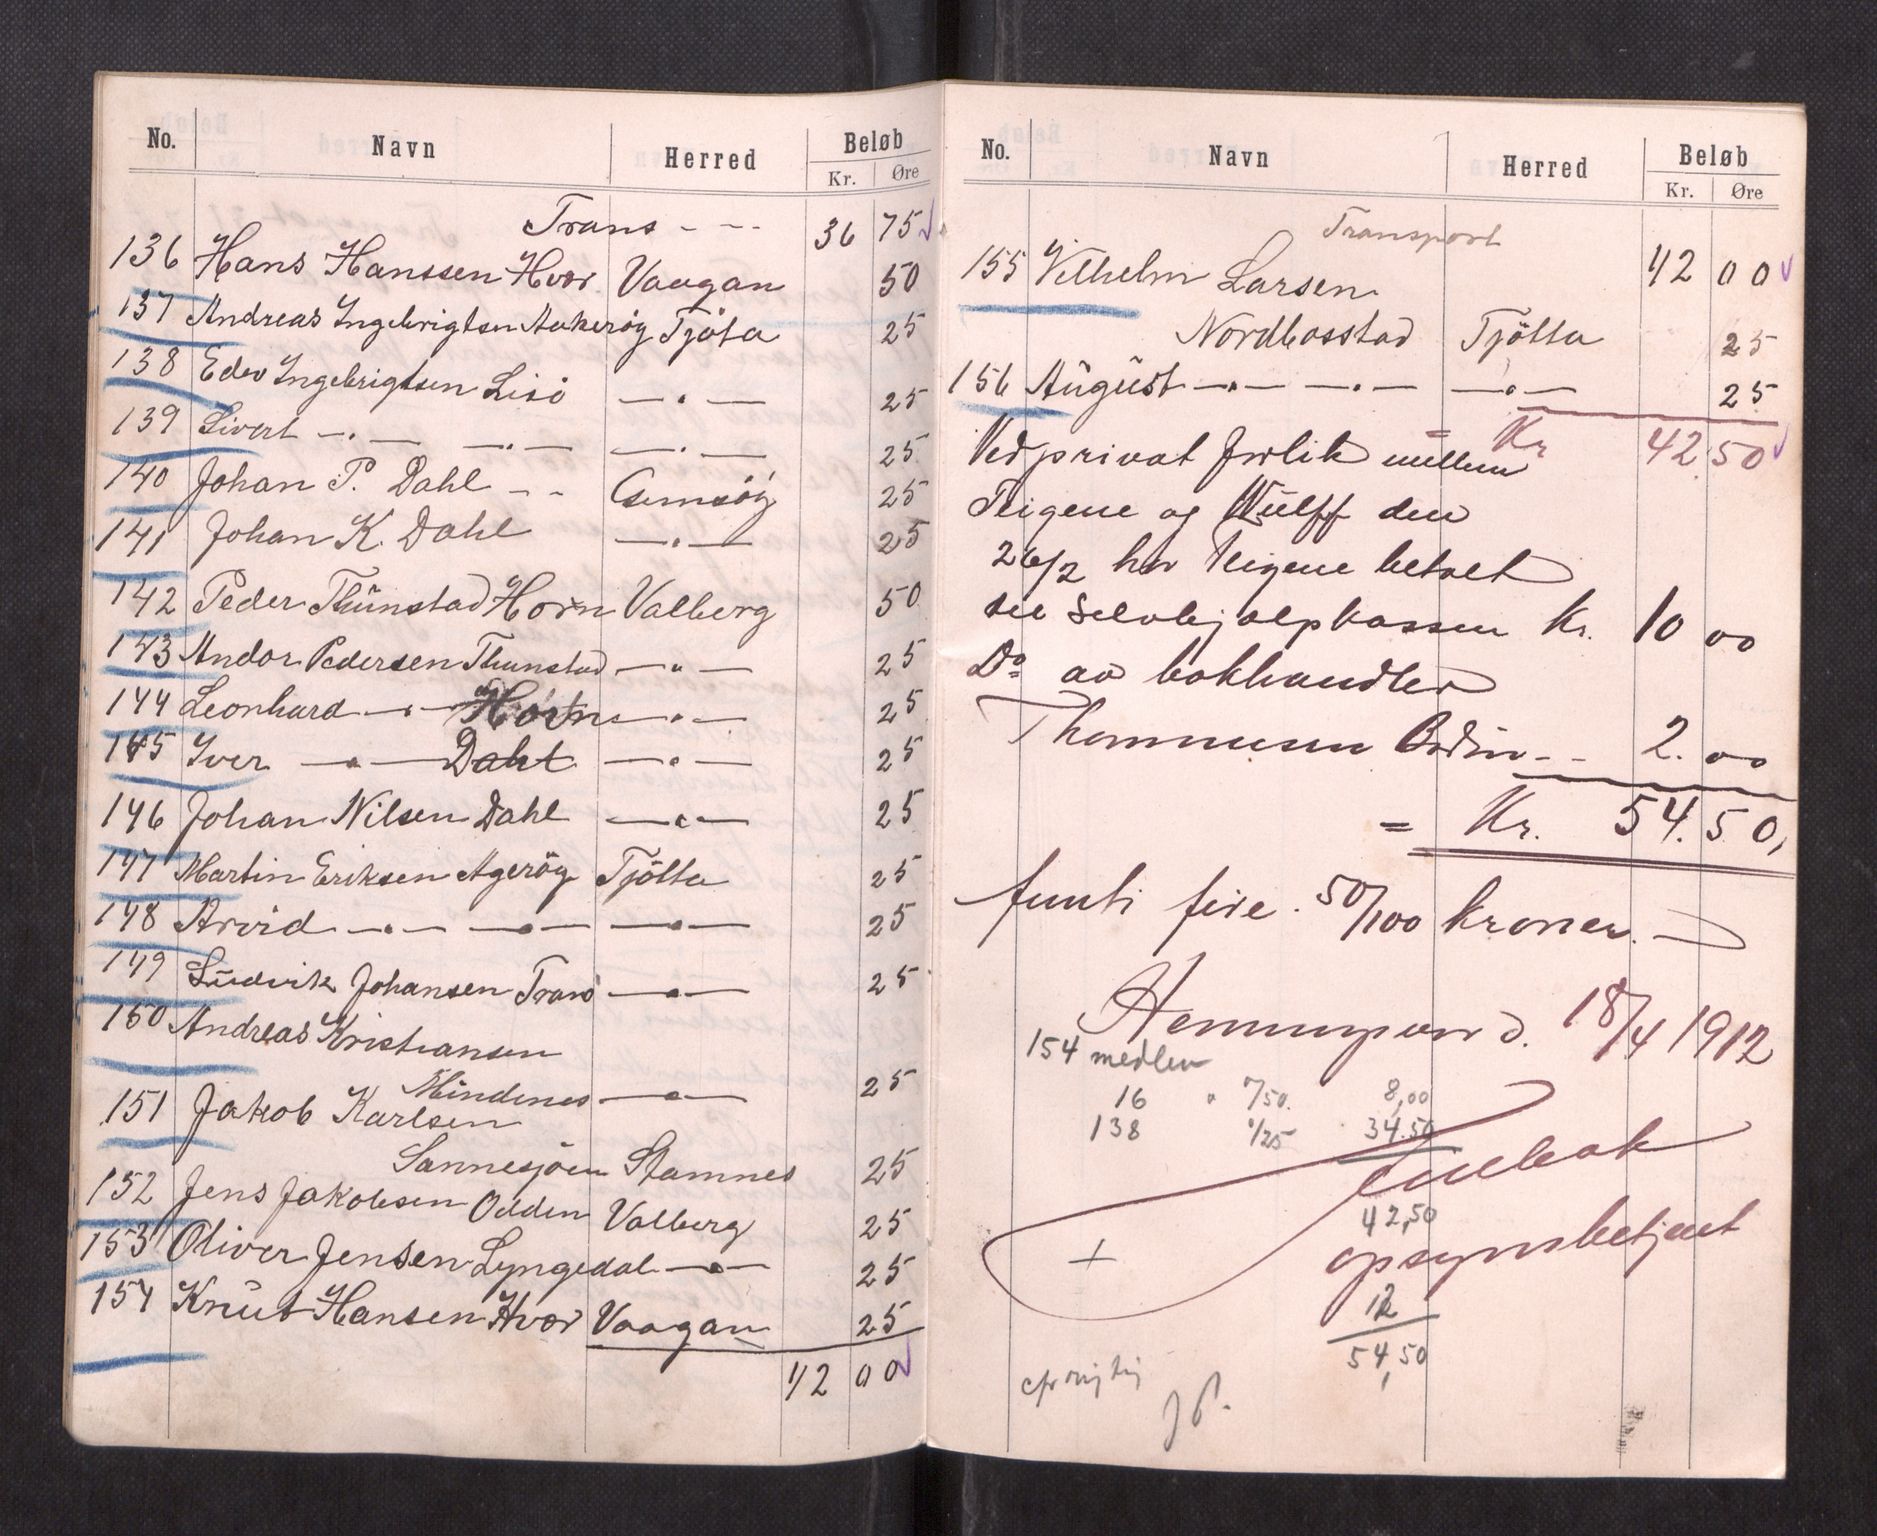 No. Navn Herred Beløb
Kr. Øre
Trans - - - 36 75
136 Hans Hanssen Hvor Vaagan 50
137 Andreas Ingebrigtsen Aakerøy Tjöta 25
138 Edev Ingebrigtsen Lisö —"— 25
139 Sivert —"— —"— —"— 25
140 Johan P. Dahl - - Gimsöy 25
141 Johan K. Dahl —"— 25
142 Peder Thunstad Horn Valberg 50
143 Andor Pedersen Thunstad —"— 25
144 Leonhard —"— Horn —"— 25
145 Iver —"— Dahl —"— 25
146 Johan Nilsen Dahl —"— 25
147 Martin Eriksen Ageröy Tjötta 25
148 Arvid —"— —"— —"— 25
149 Ludvik Johansen Tranö —"— 25
150 Andreas Kristiansen
Mindenes —"— 25
151 Jakob Karlsen
Sannesjöen Stamnes 25
152 Jens Jakobsen Odden Valberg 25
153 Oliver Jensen Lyngedal —"— 25
154 Knut Hansen Hvor Vaagan 25
42 00
No. Navn Herred Beløb
Kr. Øre
Transport
155 Vilhelm Larsen 42 00
Nordbosstad Tjötta 25
156 August —"— —"— —"— 25
= Kr 42 50
Ved privat forlik mellem
Teigene og Wulff den
26/2 har Teigene betalt
til Selvhjælpkassen Kr. 10 00
Do av bokhandler
Thommesen Bodin - - 2.00
= Kr. 54.50,
femti fire 50/100 kroner.
Henningsvær d. 18/4 1912
154 medlem
16 " 0/50. 8,00
138 0/25 34.50
42,50
opsynsbetjent
+
12
54,50